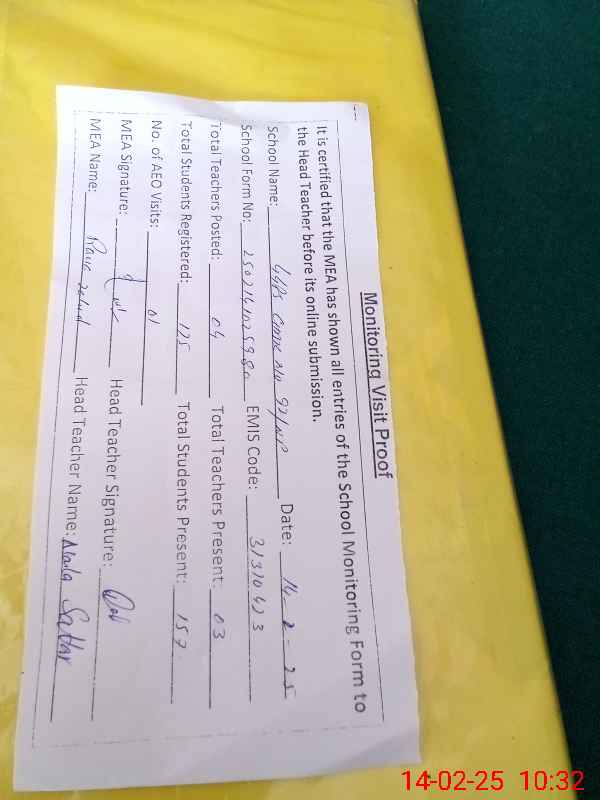 Monitoring Visit Proof
It is certified that the MEA has shown all entries of the School Monitoring Form to
the Head Teacher before its online submission.
School Name: GGPS Chak No 92/NP Date: 14-2-25
School Form No: EMIS Code: 31310423
Total Teachers Posted: 04 Total Teachers Present: 03
Total Students Registered: 175 Total Students Present: 157
No. of AEO Visits: 01
MEA Signature: Head Teacher Signature:
MEA Name: Head Teacher Name: Naila Sattar
14-02-25 10:32